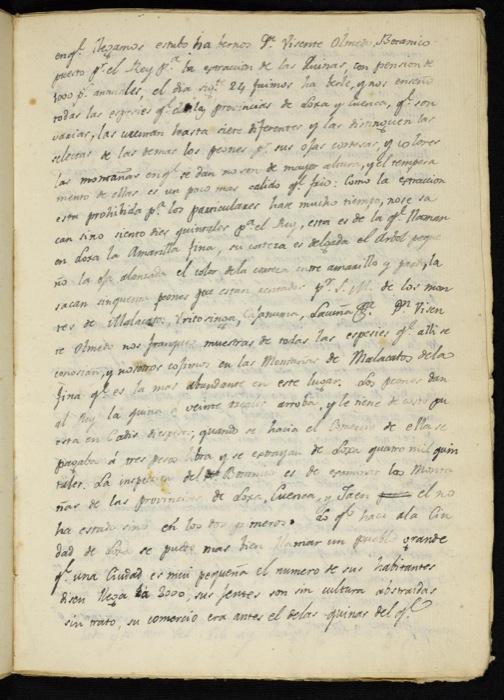 enq.e llegamos estubo ha bernos D.n Visente Olmedo, Botanico
puesto p.r el Rey p.a la estracion de las Quinas, con pension de
3000 p.s anuales, el dia sig.te 24 fuimos ha berle, y nos enseño
todas las especies q.e de las provincias de Loxa y Cuenca, q.e son
varias, las asinan hasta siete diferentes y las distinguen las
selectas de las demas los peones p.r sus ojas cortesas, y colores
las montañas enq.e se dan no son de mayor altura, y el tempera
mento de ellas es un poco mas calido q.e frio: Como la estraccion
esta prohibida p.a los particulares hace mucho tiempo, no se sa
can sino siento dies quintales p.a el Rey, esta es de la q.e llaman
en Loxa la Amarilla fina, su corteza es delgada el Arbol peque
ño la oja alonzada el color de la corteza entre amarillo y pardo, la
sacan sinquenta peones que estan p.r S. M. de los mon
tes de Malacatos, Vritosinga, Caxanuma, D.n Visen
te Olmedo nos franqueo muestras de todas las especies q.e alli se
conosian, y nosotros cojimos en las Montañas de Malacatos de la
fina q.e es la mas abundante en este lugar. Los peones dan
al Rey la quina a veinte reales arroba, y le tiene de costo pu
esta en Cadis dies p.s; quando se hacia el Comercio de ella se
pagaba á tres pesos libra y se extrayan de Loxa quatro mil quin
tales. La inspecion del Botanico es de examinar las Monta
ñas de las provincias de Loxa, Cuenca, y Jaen el no
ha estado sino en los dos primeros. Lo q.e hace ala Ciu
dad de Loxa se puede mas bien llamar un pueblo grande
q.e una Ciudad es mui pequeña el numero de sus habitantes
disen llega ha 3000, sus jentes son sin cultura abstraidas
sin trato, su comercio era antes el de las quinas del q.e